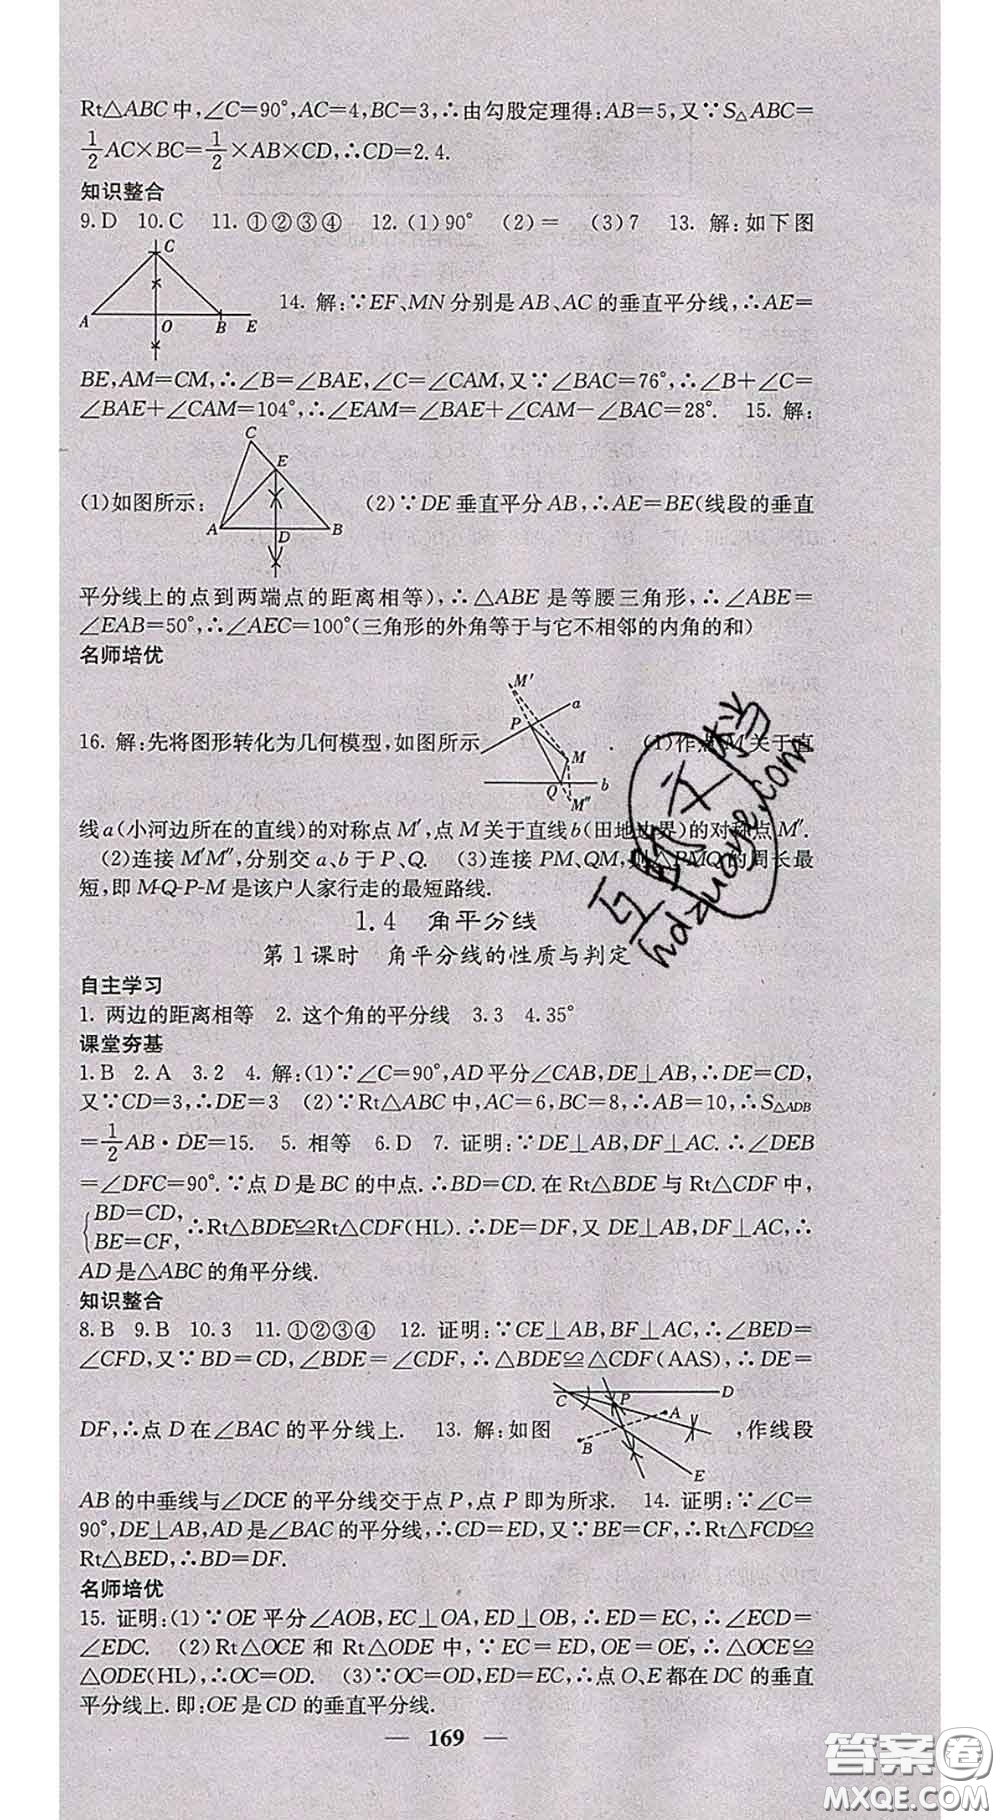 Rt△ABC中,∠C=90°,AC=4,BC=3,∴由勾股定理得:AB=5,又∵S△ABC=
1/2 AC×BC=1/2×AB×CD,∴CD=2.4.
知识整合
9.D 10.C 11.①②③④ 12.(1)90° (2)= (3)7 13. 解:如下图
C
A O B E
14. 解:∵EF、MN分别是AB、AC的垂直平分线,∴AE=
BE,AM=CM,∴∠B=∠BAE,∠C=∠CAM,又∵∠BAC=76°,∴∠B+∠C=
∠BAE+∠CAM=104°,∴∠EAM=∠BAE+∠CAM-∠BAC=28°. 15. 解:
C
E
A D B
(1)如图所示: (2)∵DE垂直平分AB,∴AE=BE(线段的垂直
平分线上的点到两端点的距离相等),∴△ABE是等腰三角形,∴∠ABE=
∠EAB=50°,∴∠AEC=100°(三角形的外角等于与它不相邻的内角的和)
名师培优
M′
a
P
M
Q b
M″
16. 解:先将图形转化为几何模型,如图所示 . (1)作点M关于直
线a(小河边所在的直线)的对称点M′,点M关于直线b(田地边界)的对称点M″.
(2)连接M′M″,分别交a、b于P、Q. (3)连接PM、QM,则△PMQ的周长最
短,即M-Q-P-M是该户人家行走的最短路线.
互助文档
hdzuoye.com
1.4 角平分线
第1课时 角平分线的性质与判定
自主学习
1. 两边的距离相等 2. 这个角的平分线 3.3 4.35°
课堂夯基
1.B 2.A 3.2 4. 解:(1)∵∠C=90°,AD平分∠CAB,DE⊥AB,∴DE=CD,
又∵CD=3,∴DE=3 (2)∵Rt△ABC中,AC=6,BC=8,∴AB=10,∴S△ADB
=1/2 AB·DE=15. 5. 相等 6.D 7. 证明:∵DE⊥AB,DF⊥AC.∴∠DEB
=∠DFC=90°.∵点D是BC的中点.∴BD=CD.在Rt△BDE与Rt△CDF中,
{BD=CD, BE=CF, ∴Rt△BDE≌Rt△CDF(HL).∴DE=DF,又DE⊥AB,DF⊥AC,∴
AD是△ABC的角平分线.
知识整合
8.B 9.B 10.3 11.①②③④ 12. 证明:∵CE⊥AB,BF⊥AC,∴∠BED=
∠CFD,又∵BD=CD,∠BDE=∠CDF,∴△BDE≌△CDF(AAS),∴DE=
C P D
A
B
E
DF,∴点D在∠BAC的平分线上. 13. 解:如图 ,作线段
AB的中垂线与∠DCE的平分线交于点P,点P即为所求. 14. 证明:∵∠C=
90°,DE⊥AB,AD是∠BAC的平分线,∴CD=ED,又∵BE=CF,∴Rt△FCD≌
Rt△BED,∴BD=DF.
名师培优
15. 证明:(1)∵OE平分∠AOB,EC⊥OA,ED⊥OB,∴ED=EC,∴∠ECD=
∠EDC. (2)Rt△OCE和Rt△ODE中,∵EC=ED,OE=OE,∴△OCE≌
△ODE(HL),∴OC=OD. (3)∵OC=OD,ED=EC,∴点O、E都在DC的垂直
平分线上.即:OE是CD的垂直平分线.
— 169 —
答案圈
MXQE.COM